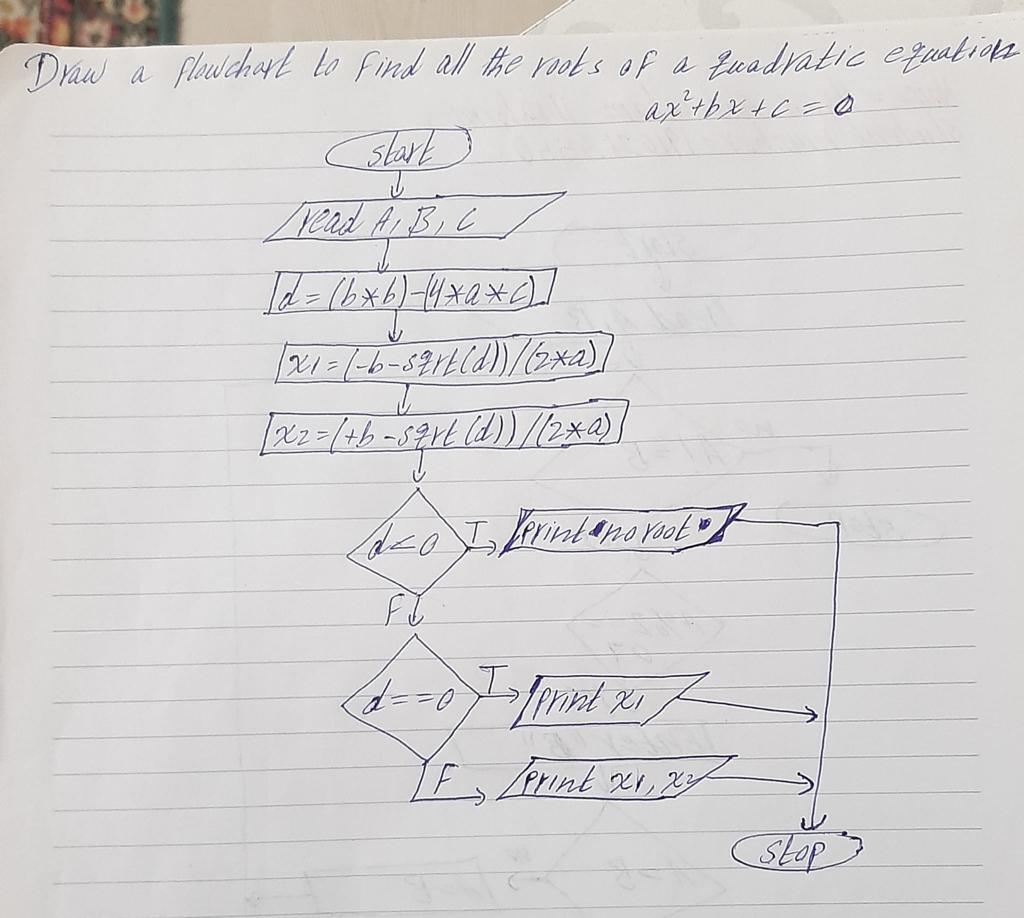 Draw a flowchart to find all the roots of a quadratic equation
ax²+bx+c=0
start
read A, B, C
d=(b*b)-(4*a*c)
x1=(-b-sqrt(d))/(2*a)
x2=(+b-sqrt(d))/(2*a)
d<0
T
print "no root"
F
d==0
T
print x1
F
print x1, x2
stop